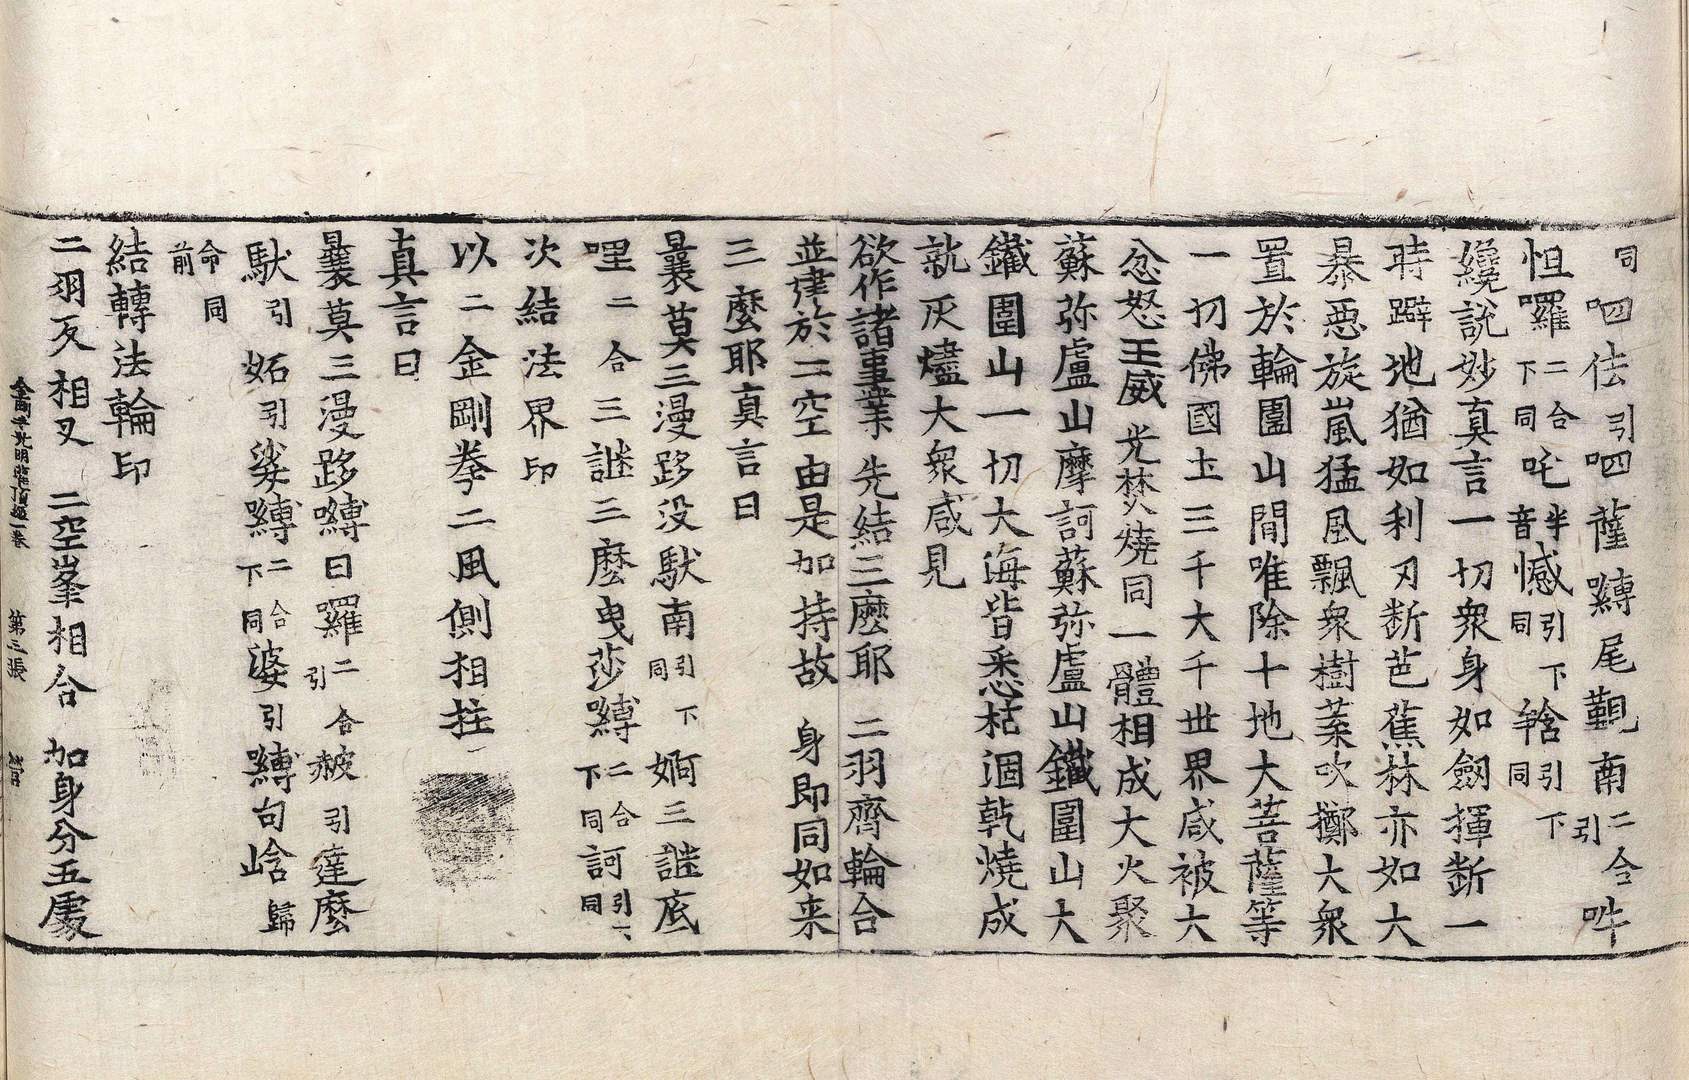 同呬佉引呬薩嚩尾覲南二合引吽
怛囉二合下同吒半音憾引下同𤚥引下同
纔說妙真言一切衆身如劔揮断一
時躃地猶如利刀断芭蕉林亦如大
暴惡旋嵐猛風飄衆樹葉吹擲大衆
置於輪圍山間唯除十地大菩薩等
一切佛國土三千大千世界咸被大
忿怒王威光焚燒同一體相成大火聚
蘇弥盧山摩訶蘇弥盧山鐵圍山大
鐵圍山一切大海皆悉枯涸乾燒成
就灰燼大衆咸見
欲作諸事業先結三麼耶二羽齊輪合
並建於二空由是加持故身即同如来
三麼耶真言曰
曩莫三漫跢没馱南引下同婀三謎底
哩二合三謎三麼曳莎嚩二合下同訶引下同
次結法界印
以二金剛拳二風側相拄
真言曰
曩莫三漫跢嚩日囉二合引赧引達麼
馱引妬引娑嚩二合下同婆引嚩句㗨歸
命同前
結轉法輪印
二羽反相叉二空峯相合加身分五處
第三張